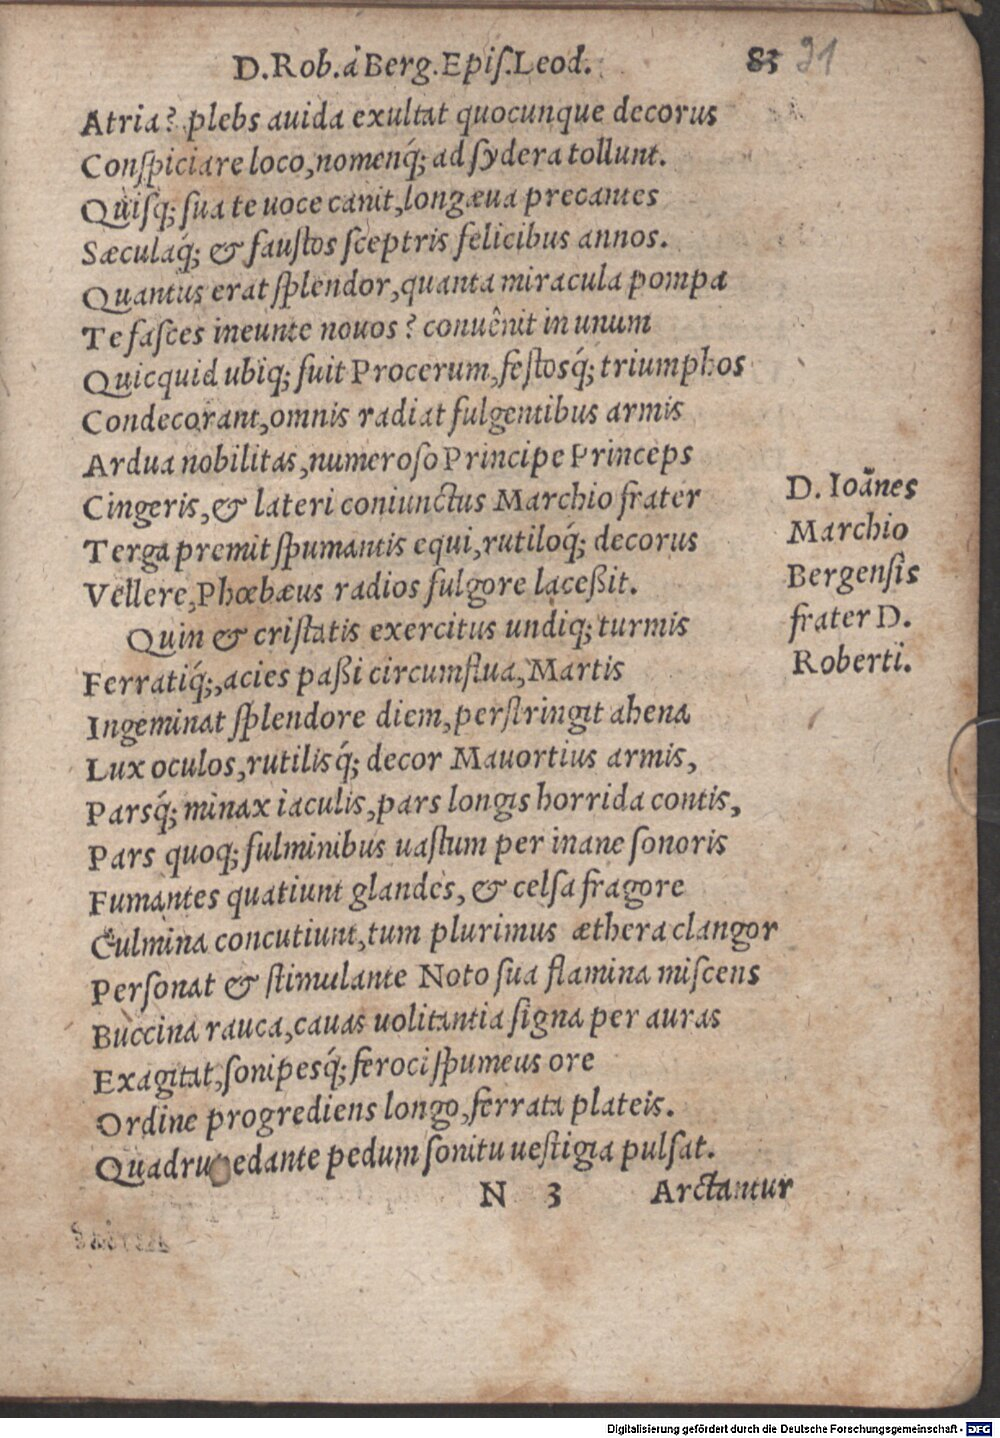 D. Rob. à Berg. Epiſ. Leod. 83 91
Atria? plebs auida exultat quocunque decorus
Conſpiciare loco, nomenq́; ad ſydera tollunt.
Quiſq; ſua te uoce canit, longæua precantes
Sæculaq́; & fauſtos ſceptris felicibus annos.
Quantus erat ſplendor, quanta miracula pompa
Te faſces ineunte nouos? conuênit in unum
Quicquid ubiq; fuit Procerum, feſtosq́; triumphos
Condecorant, omnis radiat fulgentibus armis
Ardua nobilitas, numeroſo Principe Princeps
Cingeris, & lateri coniunctus Marchio frater
Terga premit ſpumantis equi, rutiloq́; decorus
Vellere, Phœbæus radios fulgore laceßit.
Quin & criſtatis exercitus undiq; turmis
Ferratiq́;, acies paßi circumflua, Martis
Ingeminat ſplendore diem, perſtringit ahena
Lux oculos, rutilisq́; decor Mauortius armis,
Parsq́; minax iaculis, pars longis horrida contis,
Pars quoq; fulminibus uaſtum per inane ſonoris
Fumantes quatiunt glandes, & celſa fragore
Culmina concutiunt, tum plurimus æthera clangor
Perſonat & ſtimulante Noto ſua flamina miſcens
Buccina rauca, cauas uolitantia ſigna per auras
Exagitat, ſonipesq́; feroci ſpumeus ore
Ordine progrediens longo, ferrata plateis.
Quadrupedante pedum ſonitu ueſtigia pulſat.
N 3 Arctantur
D. Ioānes
Marchio
Bergenſis
frater D.
Roberti.
Digitalisierung gefördert durch die Deutsche Forschungsgemeinschaft - DFG